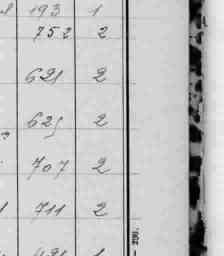 193 1
752 2
621 2
625 2
707 2
711 2